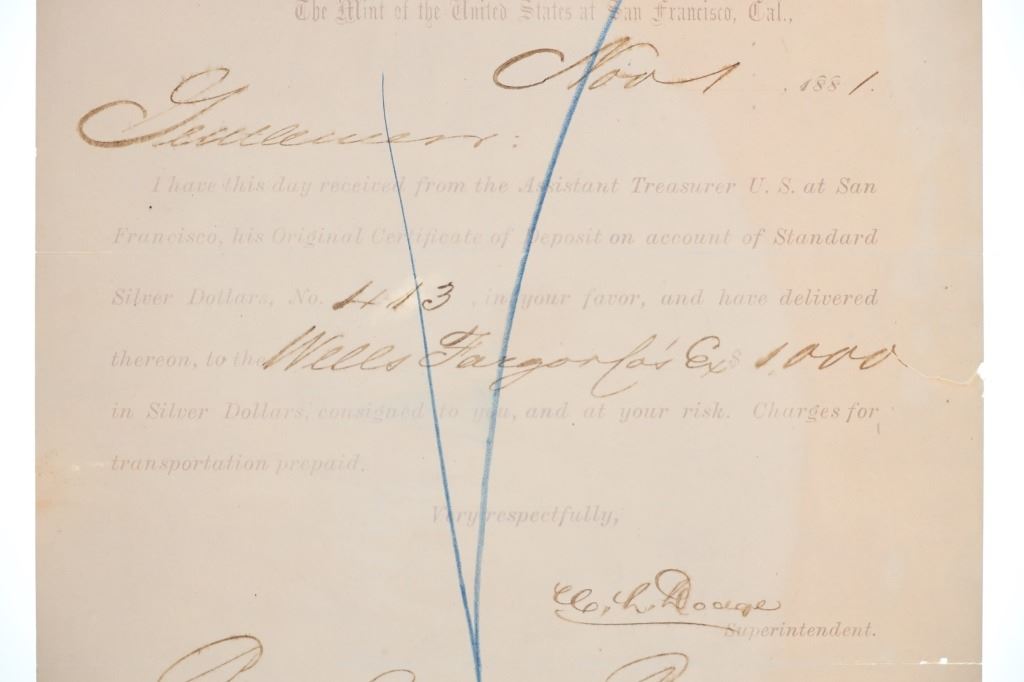 The Mint of the United States at San Francisco, Cal.,
Nov 1 . 1881.
Gentlemen :
I have this day received from the Assistant Treasurer U. S. at San
Francisco, his Original Certificate of Deposit on account of Standard
Silver Dollars, No. 413 , in your favor, and have delivered
thereon, to the Wells Fargo & Co's Ex $ 1,000
in Silver Dollars, consigned to you, and at your risk. Charges for
transportation prepaid.
Very respectfully,
Dodge
Superintendent.